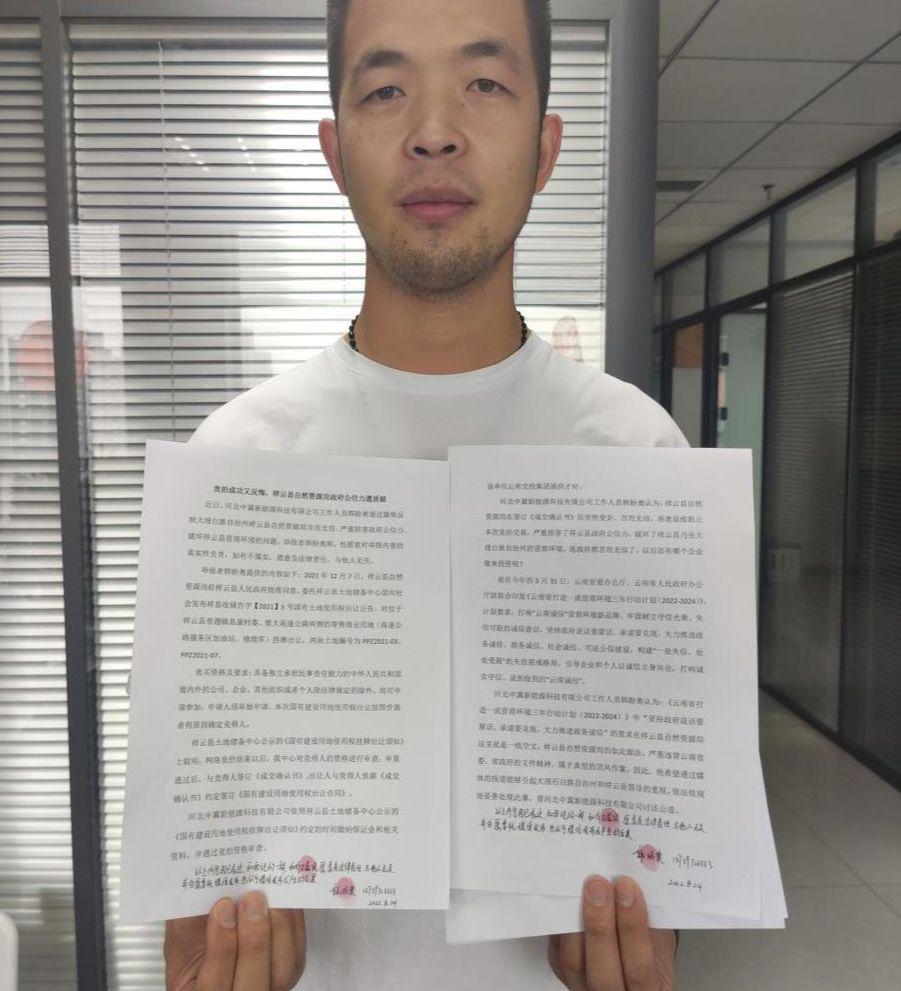 竞拍成功又反悔，祥云县自然资源局政府公信力遭质疑
近日，河北中翼新能源科技有限公司工作人员韩盼奥通过媒体反
映大理白族自治州祥云县自然资源局言而无信，严重损害政府公信力，
破坏祥云县营商环境的问题。举报者韩盼奥称，他愿意对举报内容的
真实性负责，如有不属实，愿意负法律责任，与他人无关。
举报者韩盼奥提供的内容如下：2021年12月7日，祥云县自然
资源局经祥云县人民政府批准同意，委托祥云县土地储备中心面向社
会发布祥县收储告字【2021】5号国有土地使用权出让公告，对位于
祥云县普淜镇县康村委、楚大高速公路两侧的零售商业用地（高速公
路服务区加油站、修理库）挂牌出让，两块土地编号为PPZ2021-03、
PPZ2021-07。
竞买资格及要求：具备独立承担民事责任能力的中华人民共和国
境内外的公司、企业、其他组织或者个人除法律规定的除外，均可申
请参加，申请人须单独申请。本次国有建设用地使用权出让按照价高
者得原则确定竞得人。
祥云县土地储备中心公示的《国有建设用地使用权挂牌出让须知》
上载明，网络竞价结束以后，我中心对竞得人的资格进行审查，审查
通过后，与竞得人签订《成交确认书》,出让人与竞得人依据《成交
确认书》约定签订《国有建设用地使用权出让合同》。
河北中翼新能源科技有限公司依照祥云县土地储备中心公示的
《国有建设用地使用权挂牌出让须知》约定的时间缴纳保证金和相关
资料，并通过竞拍资格审查。
以上内容我已看过 和我说的一样 如有不属实 愿意负法律责任 与他人无关
2022.8.24
设单位云南交投集团提供才对。
河北中翼新能源科技有限公司工作人员韩盼奥认为：祥云县自然
资源局在签订《成交确认书》后突然变卦，言而无信，恶意设戒阻止
本次竞拍交易，严重损害了祥云县政府公信力，破坏了祥云县乃至大
理白族自治州的营商环境，连政府都言而无信了，以后还有哪个企业
敢来投资呢？
就在今年的5月31日，云南省委办公厅、云南省人民政府办公
厅就联合印发《云南省打造一流营商环境三年行动计划（2022-2024）》，
计划要求，打响“云南诚信”营商环境新品牌，牢固树立守信光荣、失
信可耻的诚信意识，坚持政府说话要算话、承诺要兑现，大力推进政
务诚信、商务诚信、社会诚信、司法公信建设，构建“一处失信、处
处受限”的失信惩戒格局，引导企业和个人以诚信立身兴业，打响诚
实守信、说到做到的“云南诚信”。
河北中翼新能源科技有限公司工作人员韩盼奥认为：《云南省打
造一流营商环境三年行动计划（2022-2024）》中“坚持政府说话要
算话、承诺要兑现，大力推进政务诚信”的要求在祥云县自然资源局
这里就是一纸空文，祥云县自然资源局的如此做法，严重违背云南省
委、省政府的文件精神，属于典型的顶风作案，因此，他希望通过媒
体的报道能够引起大理白族自治州和祥云县领导的重视，依法依规
地妥善处理此事，替河北中翼新能源科技有限公司讨还公道。
以上内容我已看过 和我说的一样 如有不属实 愿意负法律责任 与他人无关
2022.8.24